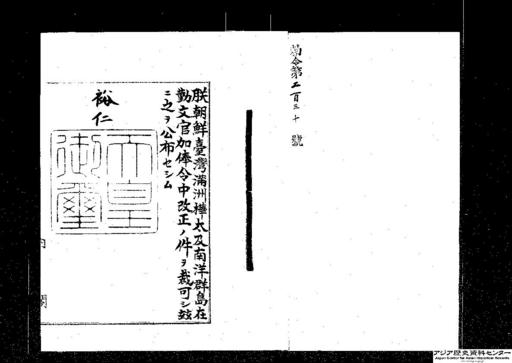 勅令第二百三十號
朕朝鮮臺灣滿洲樺太及南洋群島在
勤文官加俸令中改正ノ件ヲ裁可シ玆
ニ之ヲ公布セシム
裕仁
天皇
御璽
内閣
アジア歴史資料センター
Japan Center for Asian Historical Records